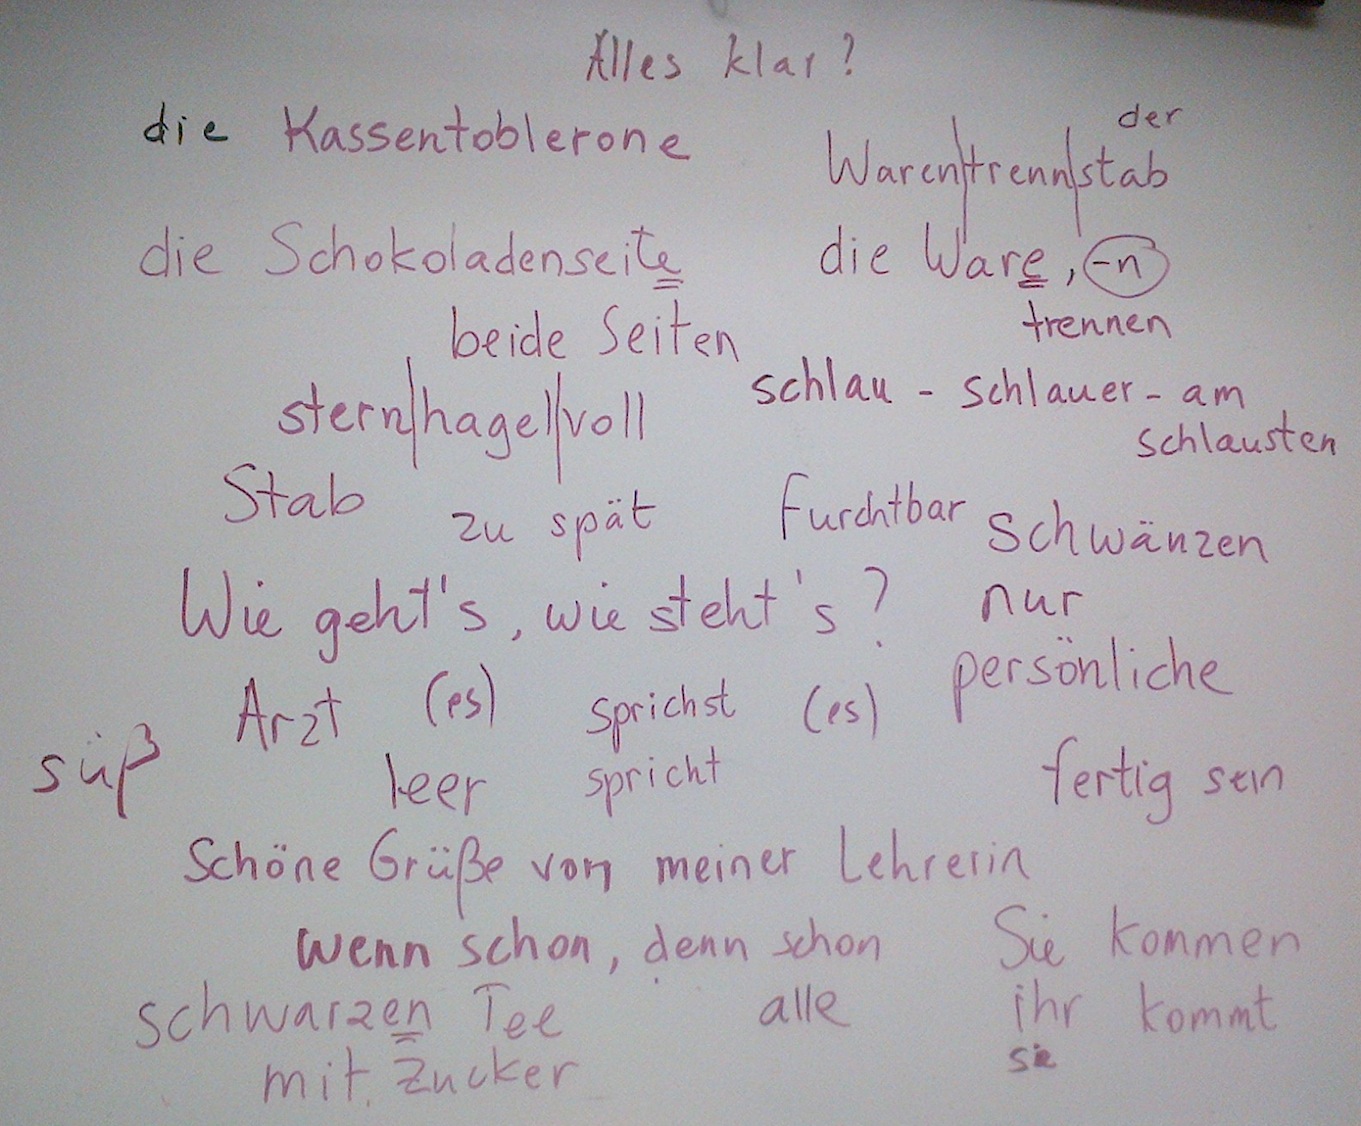 Alles klar?
die Kassentoblerone
der
Warentrennstab
die Schokoladenseite
die Ware, -n
beide Seiten
trennen
stern|hagel|voll
schlau - schlauer - am
schlausten
Stab
zu spät
furchtbar
schwänzen
Wie geht's, wie steht's?
nur
persönliche
Arzt (es) sprichst (es)
süß
leer spricht
fertig sein
Schöne Grüße von meiner Lehrerin
wenn schon, denn schon
Sie kommen
schwarzen Tee
alle
ihr kommt
sie
mit Zucker